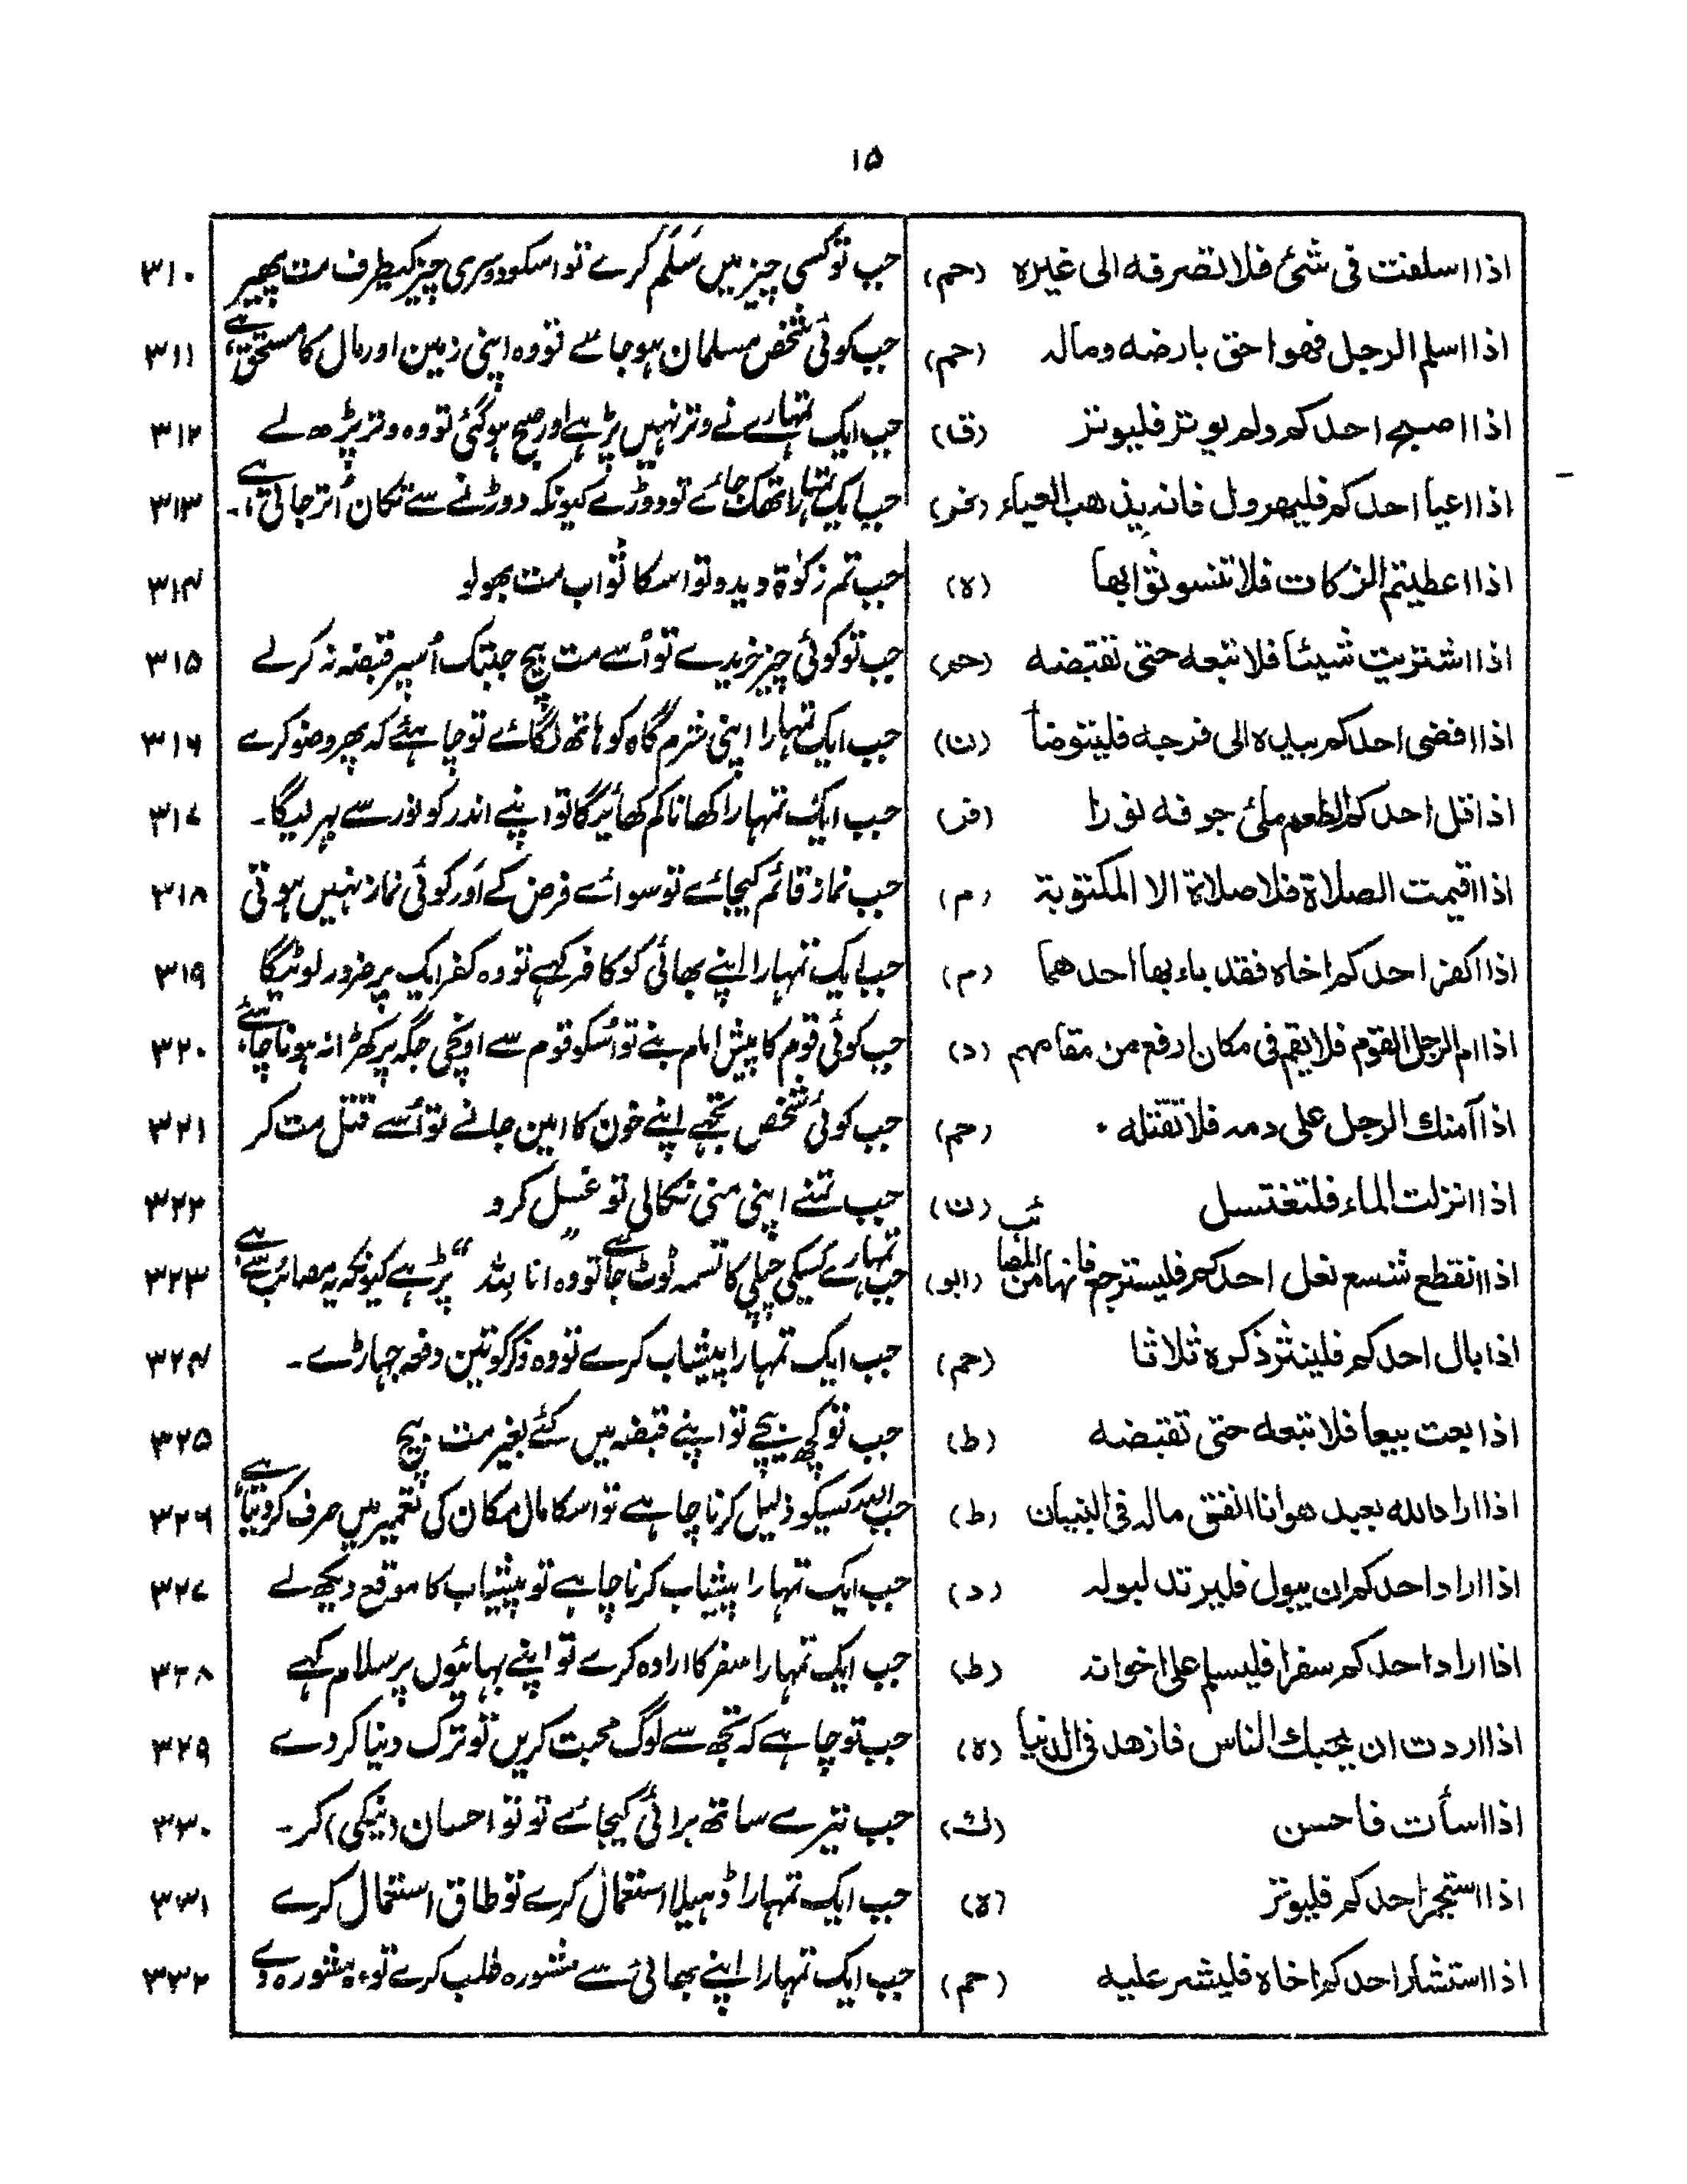 ۱۵
اذا اسلفت فی شئ فلا تصرفه الی غیره (حم) جب تو کسی چیز میں سَلَم کرے تو اسکو دوسری چیز کیطرف مت پھیر ۳۱۰
اذا اسلم الرجل فهو احق بارضه وماله (حم) جب کوئی شخص مسلمان ہو جائے تو وہ اپنی زمین اور مال کا مستحق ہے ۳۱۱
اذا اصبح احدکم ولم یوتر فلیوتر (قا) جب ایک تمہارے نے وتر نہیں پڑہے اور صبح ہو گئی تو وہ وتر پڑھ لے ۳۱۲
اذا اعیا احدکم فلیهرول فانه یذهب العیاء (فر) جب ایک تمہارا تھک جائے تو دوڑے کیونکہ دوڑنے سے تکان اُتر جاتی ہے۔ ۳۱۳
اذا اعطیتم الزکات فلا تنسو ثوابها (ه) جب تم زکوٰۃ دیدو تو اسکا ثواب مت بھولو ۳۱۴
اذا اشتریت شیئا فلا تبعه حتی تقبضه (حم) جب تو کوئی چیز خریدے تو اُسے مت بیچ جبتک اُسپر قبضہ نہ کرلے ۳۱۵
اذا افضی احدکم بیده الی فرجه فلیتوضأ (ن) جب ایک تمہارا اپنی شرم گاہ کو ہاتھ لگائے تو چاہئے کہ پھر وضو کرے ۳۱۶
اذا قل احدکم الطعم ملئ جوفه نورا (فر) جب ایک تمہارا کھانا کم کھائیگا تو اپنے اندر کو نور سے بہر لیگا۔ ۳۱۷
اذا اقیمت الصلاة فلا صلاة الا المکتوبة (م) جب نماز قائم کیجائے تو سوائے فرض کے اَور کوئی نماز نہیں ہوتی ۳۱۸
اذا اکفر احدکم اخاه فقد باء بها احدهما (م) جب ایک تمہارا اپنے بھائی کو کافر کہے تو وہ کفر ایک پر ضرور لوٹیگا ۳۱۹
اذا ام الرجل القوم فلا یقم فی مکان ارفع من مقامهم (د) جب کوئی قوم کا پیش امام بنے تو اُسکو قوم سے اونچی جگہ پر کھڑا نہ ہونا چاہئے ۳۲۰
اذا آمنك الرجل علی دمه فلا تقتله ۰ (حم) جب کوئی شخص تجھے اپنے خون کا امین جانے تو اُسے قتل مت کر ۳۲۱
اذا انزلت الماء فلتغتسل (ن) جب تمنے اپنی منی نکالی تو غسل کرو ۳۲۲
اذا انقطع شسع نعل احدکم فلیسترجع فانها من المصائب (ابو) جب تمہارے کسیکی چپلی کا تسمہ ٹوٹ جائے تو وہ انا للہ پڑہے کیونکہ یہ مصائب سے ہے ۳۲۳
اذا بال احدکم فلینثر ذکره ثلاثا (حم) جب ایک تمہارا پیشاب کرے تو وہ ذکر کو تین دفعہ جہاڑے۔ ۳۲۴
اذا بعت بیعا فلا تبعه حتی تقبضه (ط) جب تو کچھ بیچے تو اپنے قبضہ میں کئے بغیر مت بیچ ۳۲۵
اذا اراد الله بعبد هوانا انفق ماله فی البنیان (ط) جب اللہ کسیکو ذلیل کرنا چاہے تو اسکا مال مکان کی تعمیر میں صرف کر دیتا ہے ۳۲۶
اذا اراد احدکم ان یبول فلیرتد لبوله (د) جب ایک تمہارا پیشاب کرنا چاہے تو پیشاب کا موقع دیکھ لے ۳۲۷
اذا اراد احدکم سفرا فلیسلم علی اخوانه (ط) جب ایک تمہارا سفر کا ارادہ کرے تو اپنے بہائیوں پر سلام کہے ۳۲۸
اذا اردت ان یحبك الناس فازهد فی الدنیا (ه) جب تو چاہے کہ تجھ سے لوگ محبت کریں تو ترک دنیا کر دے ۳۲۹
اذا اسأت فاحسن (ك) جب تیرے ساتھ برائی کیجائے تو تو احسان (نیکی) کر۔ ۳۳۰
اذا استجمر احدکم فلیوتر (ه) جب ایک تمہارا ڈہیلا استعمال کرے تو طاق استعمال کرے ۳۳۱
اذا استشار احدکم اخاه فلیشر علیه (حم) جب ایک تمہارا اپنے بھائی سے مشورہ طلب کرے تو وہ مشورہ دے ۳۳۲